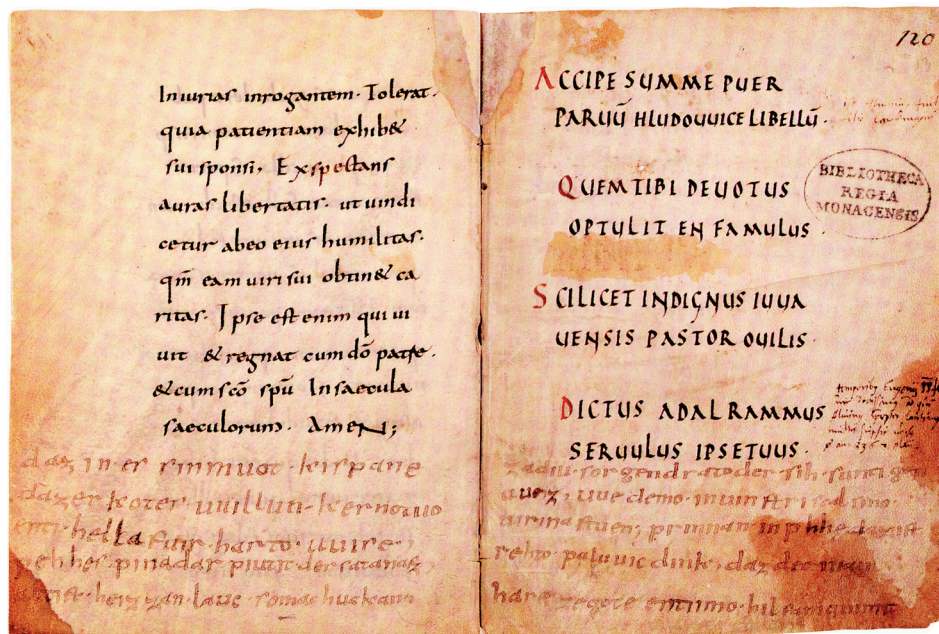 Iniurias inrogantem · Tolerat ·
quia patientiam exhib&
sui sponsi, Expectans
auras libertatis · ut uindi
cetur ab eo eius humilitas ·
qm̅ eam uiri sui obtin& ca
ritas · Ipse est enim qui ui
uit & regnat cum do̅ patre ·
& cum sco̅ spu̅ In saecula
saeculorum · AmeN;
daz in es sin muot · kispane
daz er koter · uuillun · kernο tuo
enti · hella fuir · harto · uuise ·
pehhes · pina dar piutit der satanasz
heizzan · lauc · 
120
ACCIPE SUMME PUER
PARUU̅ HLUDOUUICE LIBELLU̅ ·
QUEM TIBI DEUOTUS
OPTULIT EN FAMULUS
BIBLIOTHECA
REGIA
MONACENSIS.
SCILICET INDIGNUS IUUA
UENSIS PASTOR OUILIS ·
DICTUS ADALRAMMUS
SERUULUS IPSE TUUS ·
za diu · sorgen drato der sih · suntigen
uueiz, uue demo · in uinstri · scal · ino
stuen, prinnan in pehhe daz ist
rehto paluuic dink, daz der man
haret ze gote enti imo · hilfa ni quimit